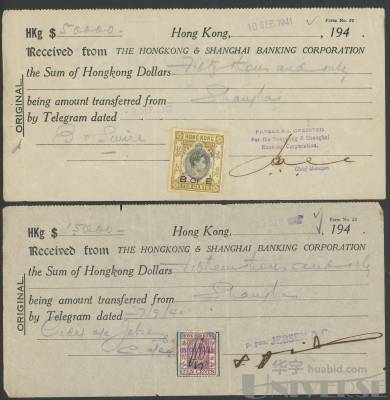 HKg $ 50000 - Hong Kong, 10 FEB 1941 194 .
Form No. 32
Received from THE HONGKONG & SHANGHAI BANKING CORPORATION
the Sum of Hongkong Dollars Fifty thousand only
being amount transferred from Shanghai
by Telegram dated
ORIGINAL
B & Swire
HONG KONG
B. OF E.
TEN CENTS
For the Hongkong & Shanghai
Banking Corporation,
Chief Manager
HKg $ 15000 - Hong Kong, 194 .
Form No. 32
Received from THE HONGKONG & SHANGHAI BANKING CORPORATION
the Sum of Hongkong Dollars Fifteen thousand only
being amount transferred from Shanghai
by Telegram dated 7/9/40
ORIGINAL
Jebsen
TEN CENTS
P. pro. JEBSEN
华宇 huabid.com
UNIVERSE